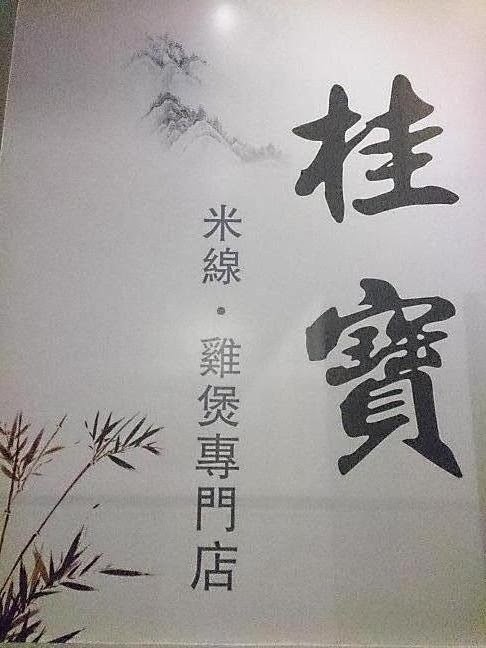 桂寶
米線・雞煲專門店